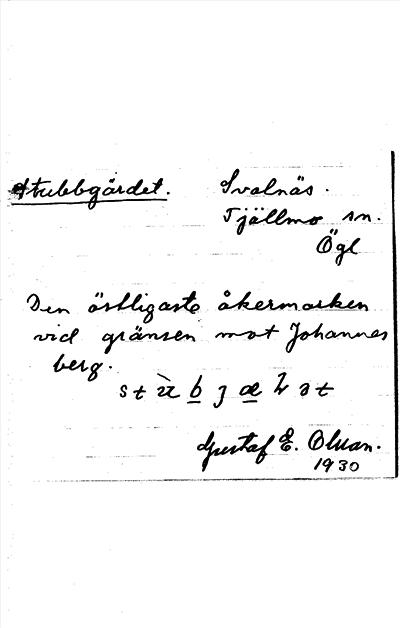 Stubbgärdet. Svalnäs.
Tjällmo sn.
Ögl
Den östligaste åkermarken
vid gränsen mot Johannes
berg.
Gustaf E. Olsson.
1930